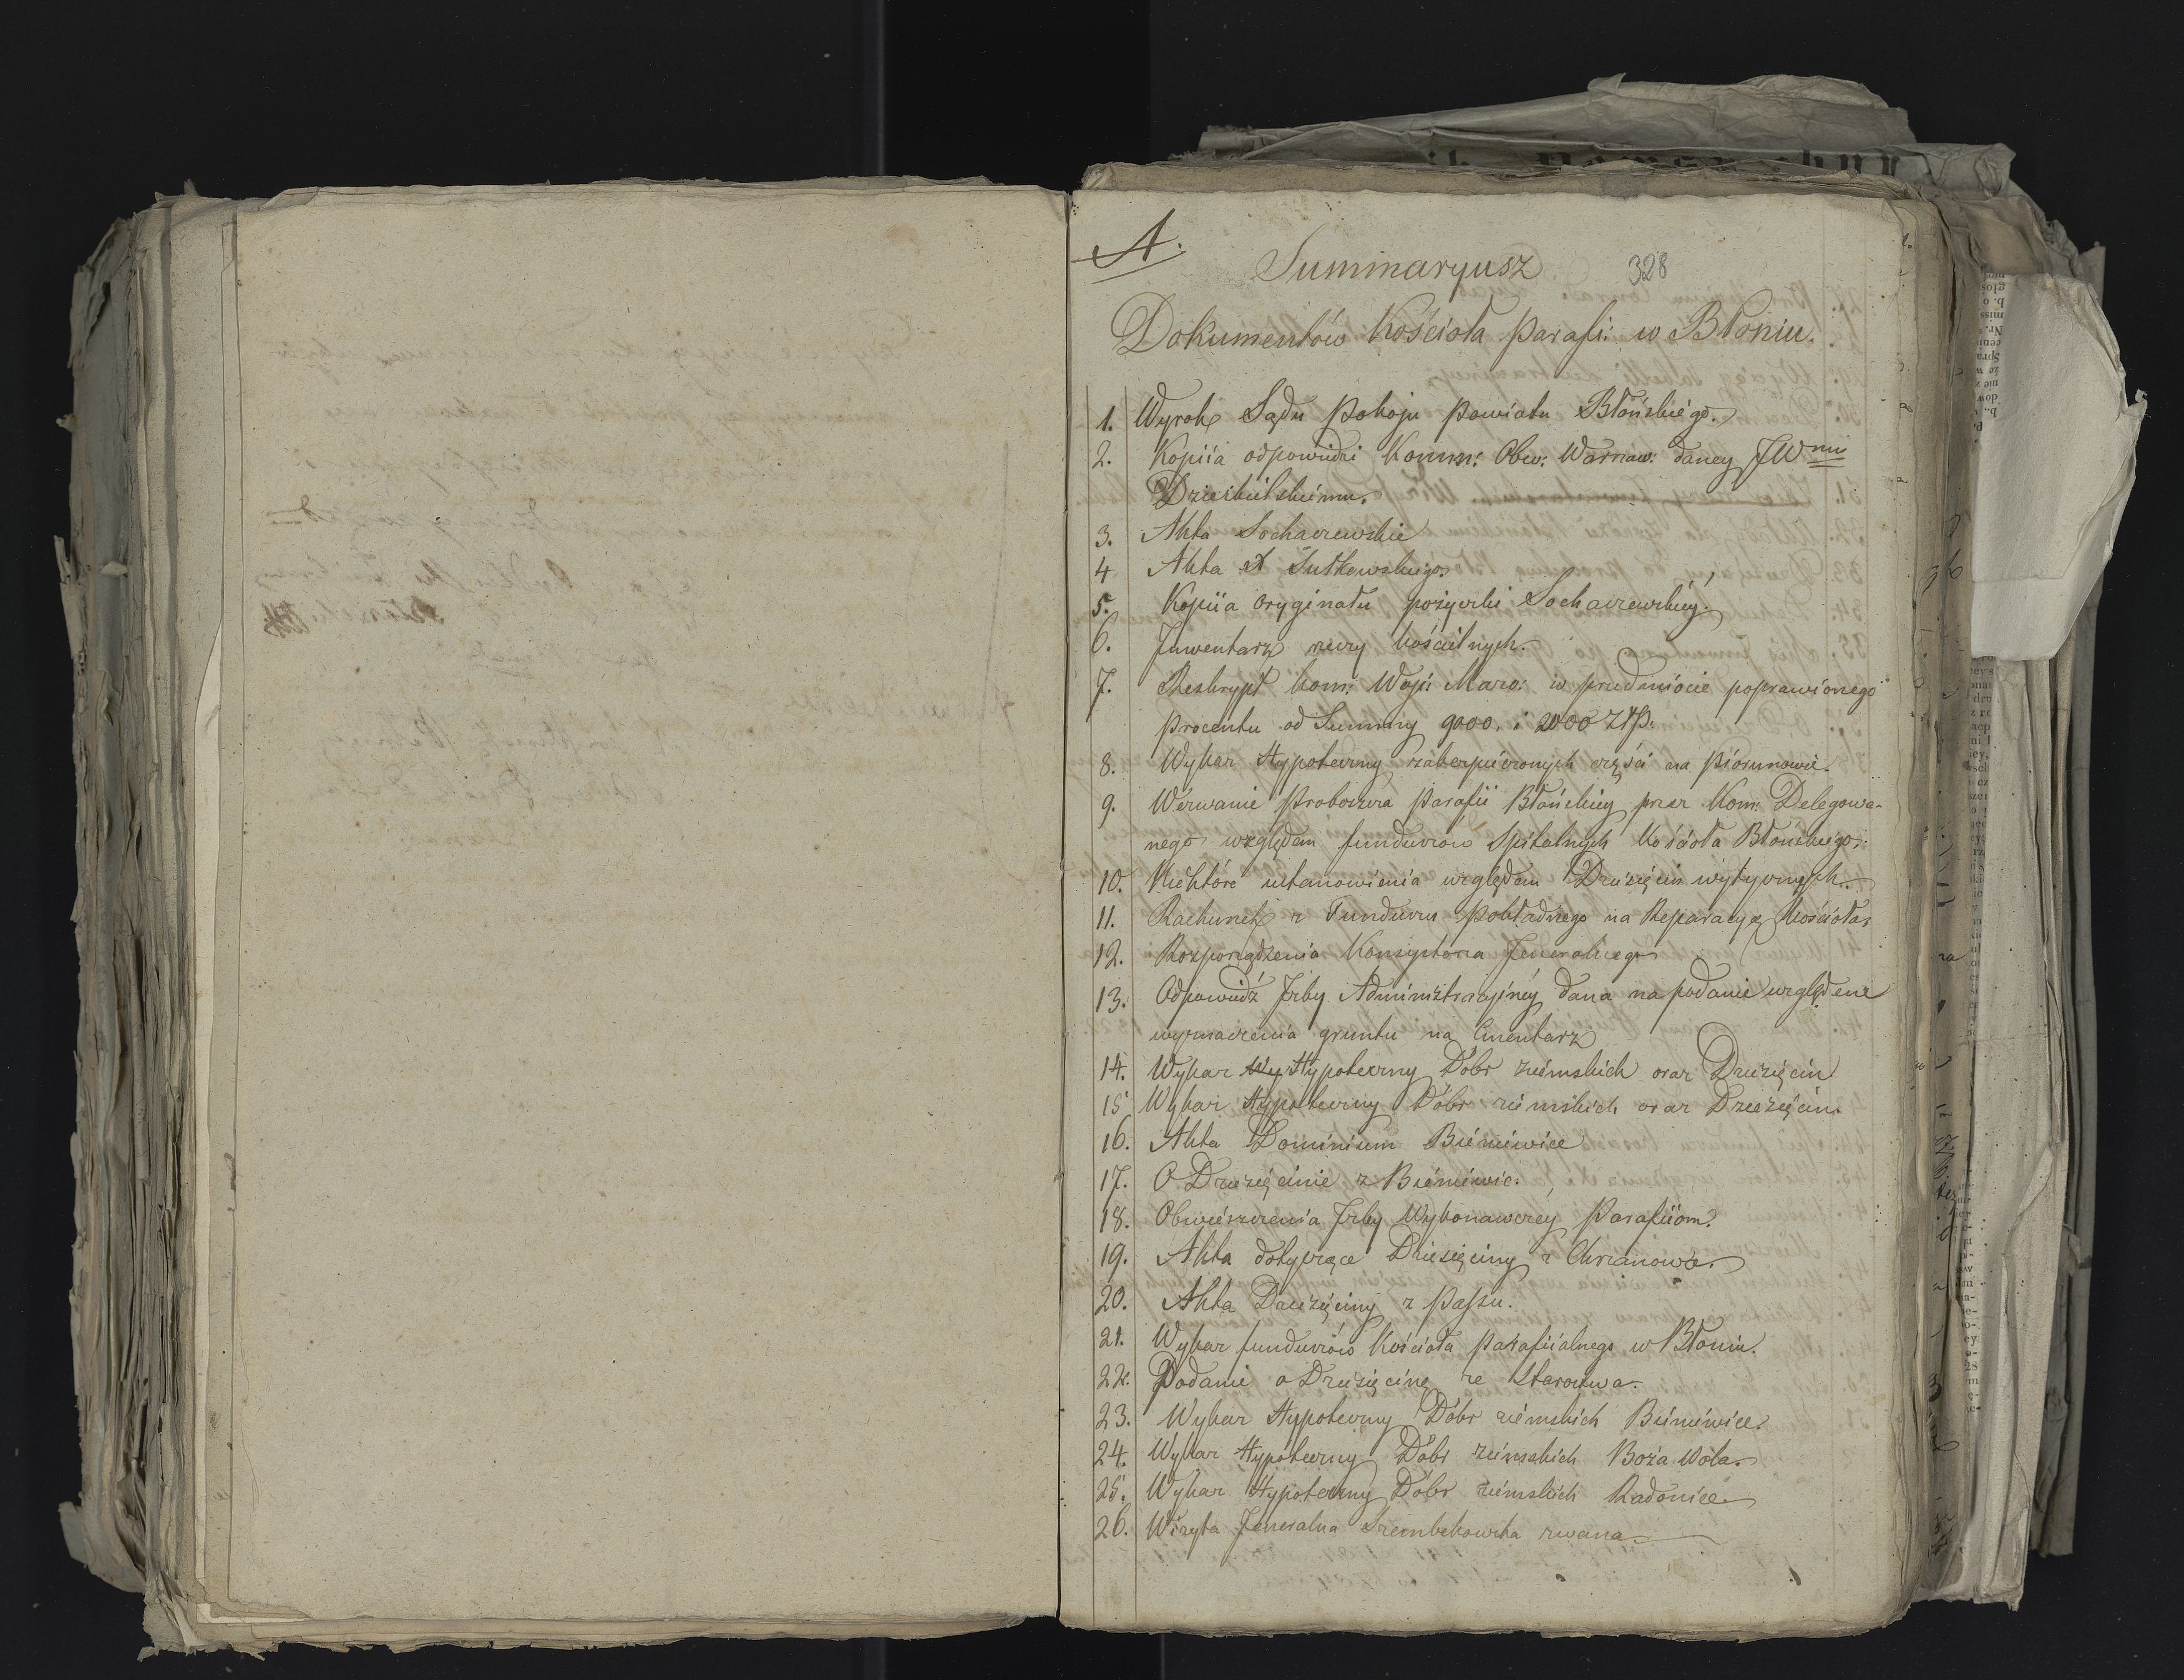 A.
Summaryusz 328
Dokumentów Kościoła Parafi: w Błoniu.
1. Wyrok Sądu Pokoju Powiatu Błońskiego.
2. Kopiia odpowiedzi Komm: Obw: Warszaw: daney JWmu
Dzierbickiemu.
3. Akta Sochaczewskie
4 Akta Sutkowskiego.
5. Kopiia oryginału pożyczki Sochaczewskiéy.
6. Inwentarz rzeczy kościelnych.
7. Reskrypt Kom: Woj: Mazo: w przedmiocie poprawionego
procentu od Summy 9000. i 2000 Złp.
8. Wykaz Hypoteczny zabezpieczonych części na Piorunowie.
9. Wezwanie Proboszcza Parafii Błońskiey przez Kom: Delegowa-
nego względem funduszów Szpitalnych Kościoła Błońskiego.
10. Niektóre ustanowienia względem Dziesięcin wytycznych.
11. Rachunek z Funduszu Pokładnego na Reparacyą Kościoła.
12. Rozporządzenia Konsystorza Jeneralnego
13. Odpowiedź Jzby Administracyinéy dana na podanie względem
wyznaczenia gruntu na Cmentarz
14. Wykaz Hypoteczny Dóbr ziemskich oraz Dziesięcin
15 Wykaz Hypoteczny Dóbr ziemskich oraz Dziesięcin.
16. Akta Dominium Bieniewice
17. O Dziesięcinie z Bieniewic.
18. Obwieszczenia Jzby Wykonawczey Parafiiom.
19. Akta dotyczące Dziesięciny z Chrzanowa.
20. Akta Dziesięciny z Passu.
21. Wykaz funduszów Kościoła Parafiialnego w Błoniu.
22. Podanie o Dziesięcinę ze Starostwa.
23. Wykaz Hypoteczny Dóbr ziemskich Bieniewice.
24. Wykaz Hypoteczny Dóbr ziemskich Boża Wola.
25. Wykaz Hypoteczny Dóbr ziemskich Radonice.
26. Wizyta Jeneralna Szembekowska zwana.